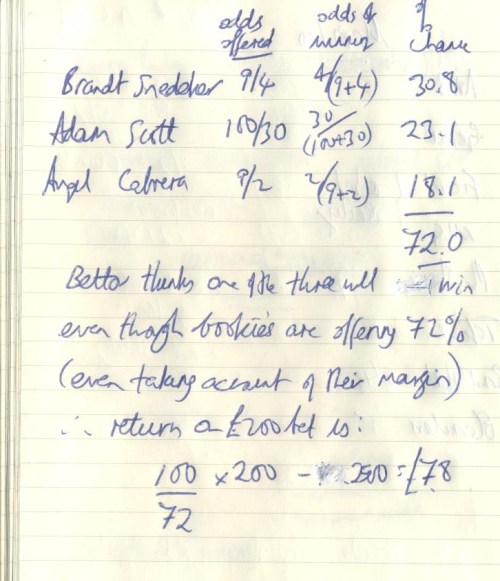 odds odds of %
offered winning chance
Brandt Snedeker 9/4 4/(9+4) 30.8
Adam Scott 100/30 30/(100+30) 23.1
Angel Cabrera 9/2 2/(9+2) 18.1
72.0
Bettor thinks one of the three will win
even though bookies are offering 72%
(even taking account of their margin)
∴ return on £200 bet is:
100/72 × 200 - 200 = £78